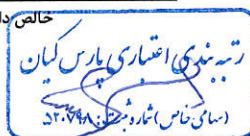 خالص
رتبه‌بندی اعتباری پارس کیان
(سهامی خاص) شماره ثبت: ۵۲۰۷۹۸